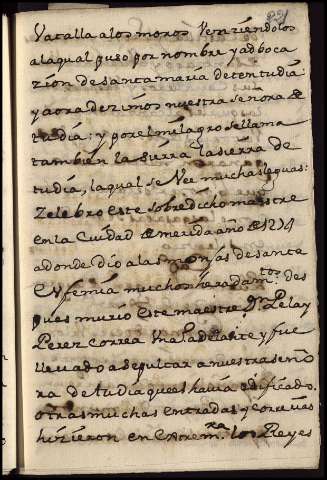 Vatalla alos moros Venziendolos
alaqual puso por nombre y adboca
zion de santa maria detentudia:
y aora dezimos nuestra señora de
tudia: y por el milagro se llama
tambien la sierra la sierra de
tudia, la qual se Vee muchas leguas:
Zelebro este sobre dicho maestre
en la Ciudad de merida año de 1274
adonde dio alas monjas de sante
Eufemia muchos heredamtos. des
pues murio Este maestre Dn Pelay
Perez Correa en adelante y fue
llevado a sepultar a nuestra seño
ra de tudia que el havia edificado.
otras muchas entradas y corrias
hizieron en Extremra. los Reyes